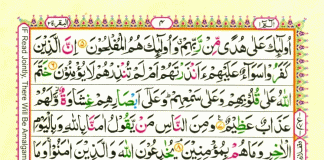 البقرة ٢
٣
الٓمّٓ ١
اُولٰٓئِكَ عَلٰى هُدًى مِّنْ رَّبِّهِمْ وَ اُولٰٓئِكَ هُمُ الْمُفْلِحُوْنَ اِنَّ الَّذِيْنَ
كَفَرُوْا سَوَآءٌ عَلَيْهِمْ ءَاَنْذَرْتَهُمْ اَمْ لَمْ تُنْذِرْهُمْ لَا يُؤْمِنُوْنَ خَتَمَ
اللّٰهُ عَلٰى قُلُوْبِهِمْ وَ عَلٰى سَمْعِهِمْ وَ عَلٰٓى اَبْصَارِهِمْ غِشَاوَةٌ وَّ لَهُمْ
عَذَابٌ عَظِيْمٌ وَ مِنَ النَّاسِ مَنْ يَّقُوْلُ اٰمَنَّا بِاللّٰهِ وَ بِالْيَوْمِ
الْاٰخِرِ وَ مَا هُمْ بِمُؤْمِنِيْنَ يُخٰدِعُوْنَ اللّٰهَ وَ الَّذِيْنَ اٰمَنُوْا وَ مَا
(IF Read Jointly, There Will Be Amalgam